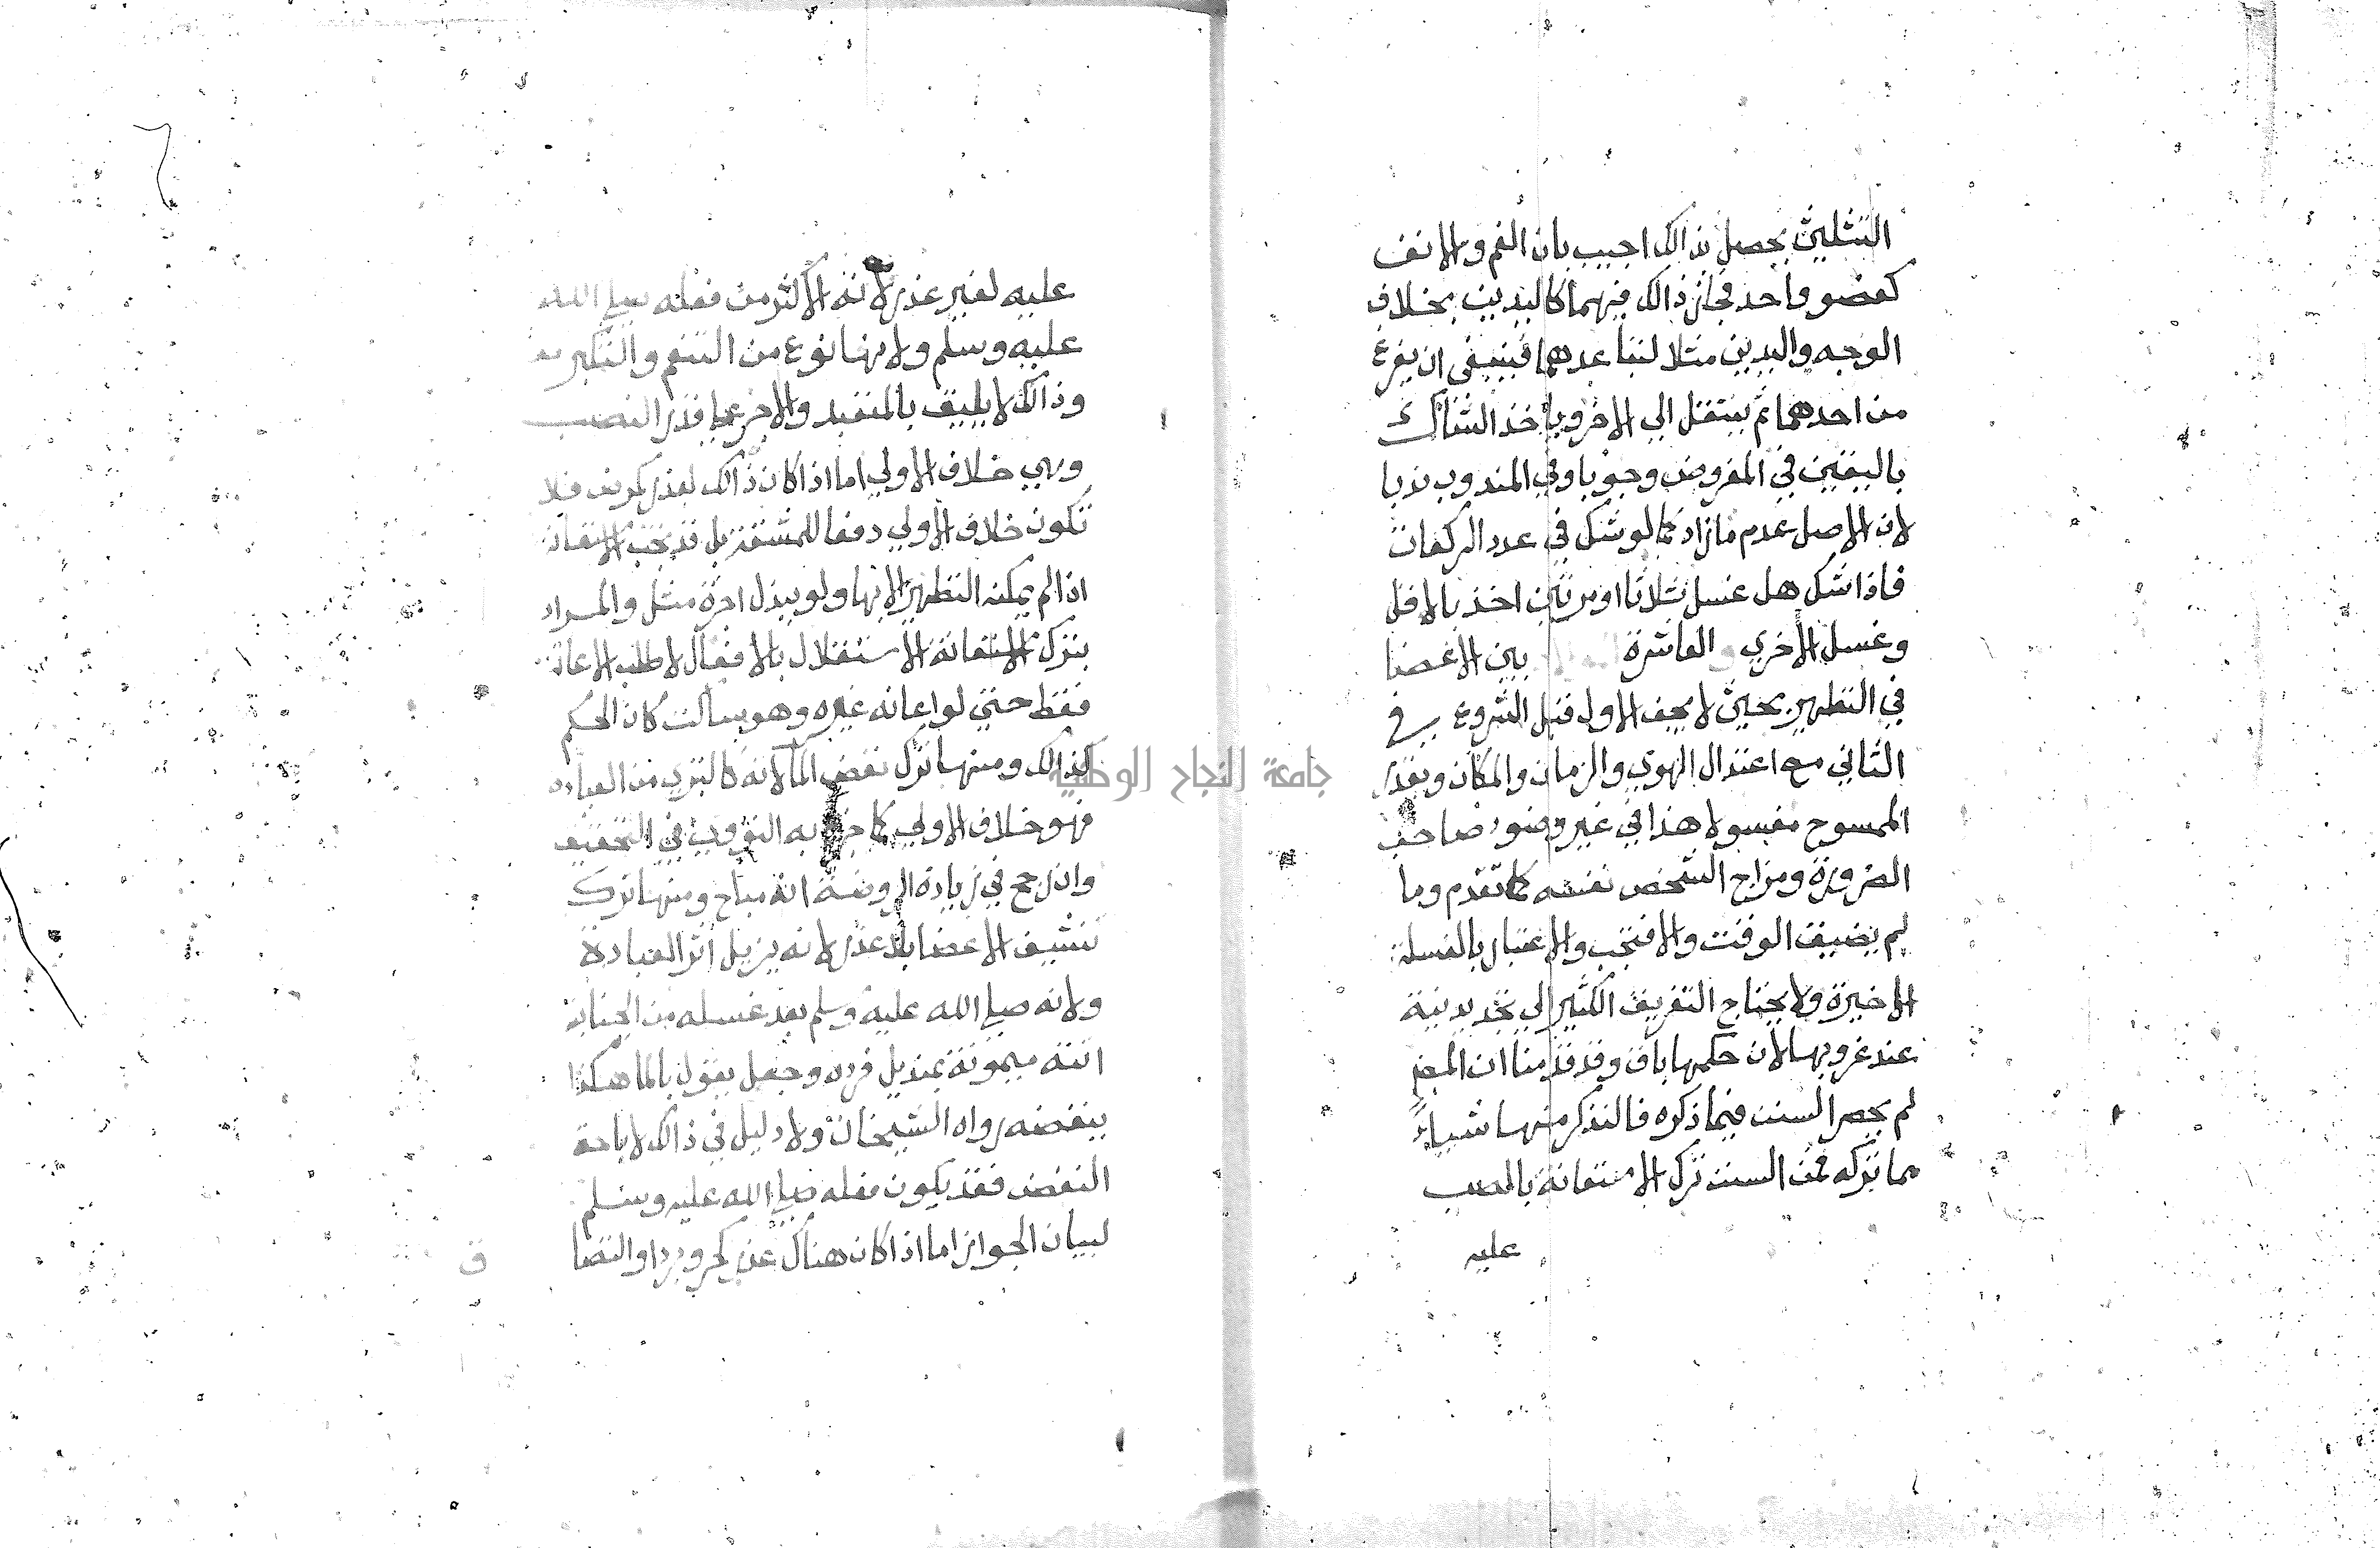 التثليث يحصل بذالك اجيب بان الفم والانف
كعضو واحد فجاز ذالك فيهما كاليدين بخلاف
الوجه واليدين مثلا لتباعدهما فينبغي ان يفرغ
من احدهما ثم ينتقل الي الاخر وياخذ الشاك
باليقين في المفروض وجوبا وفي المندوب ندبا
لان الاصل عدم مازاد كما لو شك في عدد الركعات
فاذا شك هل غسل ثلاثا او مرتين اخذ بالاقل
وغسل الاخري والعاشرة بين الاعضا
في التطهير بحيث لا يجف الاول قبل الشروع في
الثاني مع اعتدال الهوي والزمان والمكان ويقدر
الممسوح مغسولا هذا في غير وضوء صاحب
الضرورة ومزاج الشخص نفسه كما تقدم وما
لم يضيق الوقت والا فتجب والاعتبار بالغسلة
الاخيرة ولا يحتاج التفريق الكثير الي تجديد نية
عند عزوبها لان حكمها باق وقد قدمنا ان المص
لم يحصر السنن فيما ذكره فالنذكر منها شياء
مما تركه فمن السنن ترك الاستعانة بالصب
عليه
عليه لغير عذر لانه الاكثر من فعله صلي الله
عليه وسلم ولانها نوع من التنعم والتكبر
وذالك لا يليق بالمتعبد والاجر علي قدر النصب
وهي خلاف الاولي اما اذا كان ذالك لعذر كمرض فلا
تكون خلاف الاولي دفعا للمشقة بل قد تجب الاستعانة
اذا لم يمكنه التطهير الا بها ولو ببذل اجرة مثل والمراد
بترك الاستعانة الاستقلال بالافعال لا طلب الاعانة
فقط حتي لو اعانه غيره وهو ساكت كان الحكم
كذالك ومنها ترك نفض الما لانه كالتبري من العبادة
فهو خلاف الاولي كما جزم به النووي في التحقيق
وان رجح في زيادة الروضة انه مباح ومنها ترك
تنشيف الاعضا بلا عذر لانه يزيل اثر العبادة
ولانه صلي الله عليه وسلم بعد غسله من الجنابة
اتته ميمونة بمنديل فرده وجعل يقول بالما هكذا
ينفضه رواه الشيخان ولا دليل في ذالك لاباحة
النفض فقد يكون فعله صلي الله عليه وسلم
لبيان الجواز اما اذا كان هناك عذر كحر وبرد او التصا
ق
جامعة النجاح الوطنية